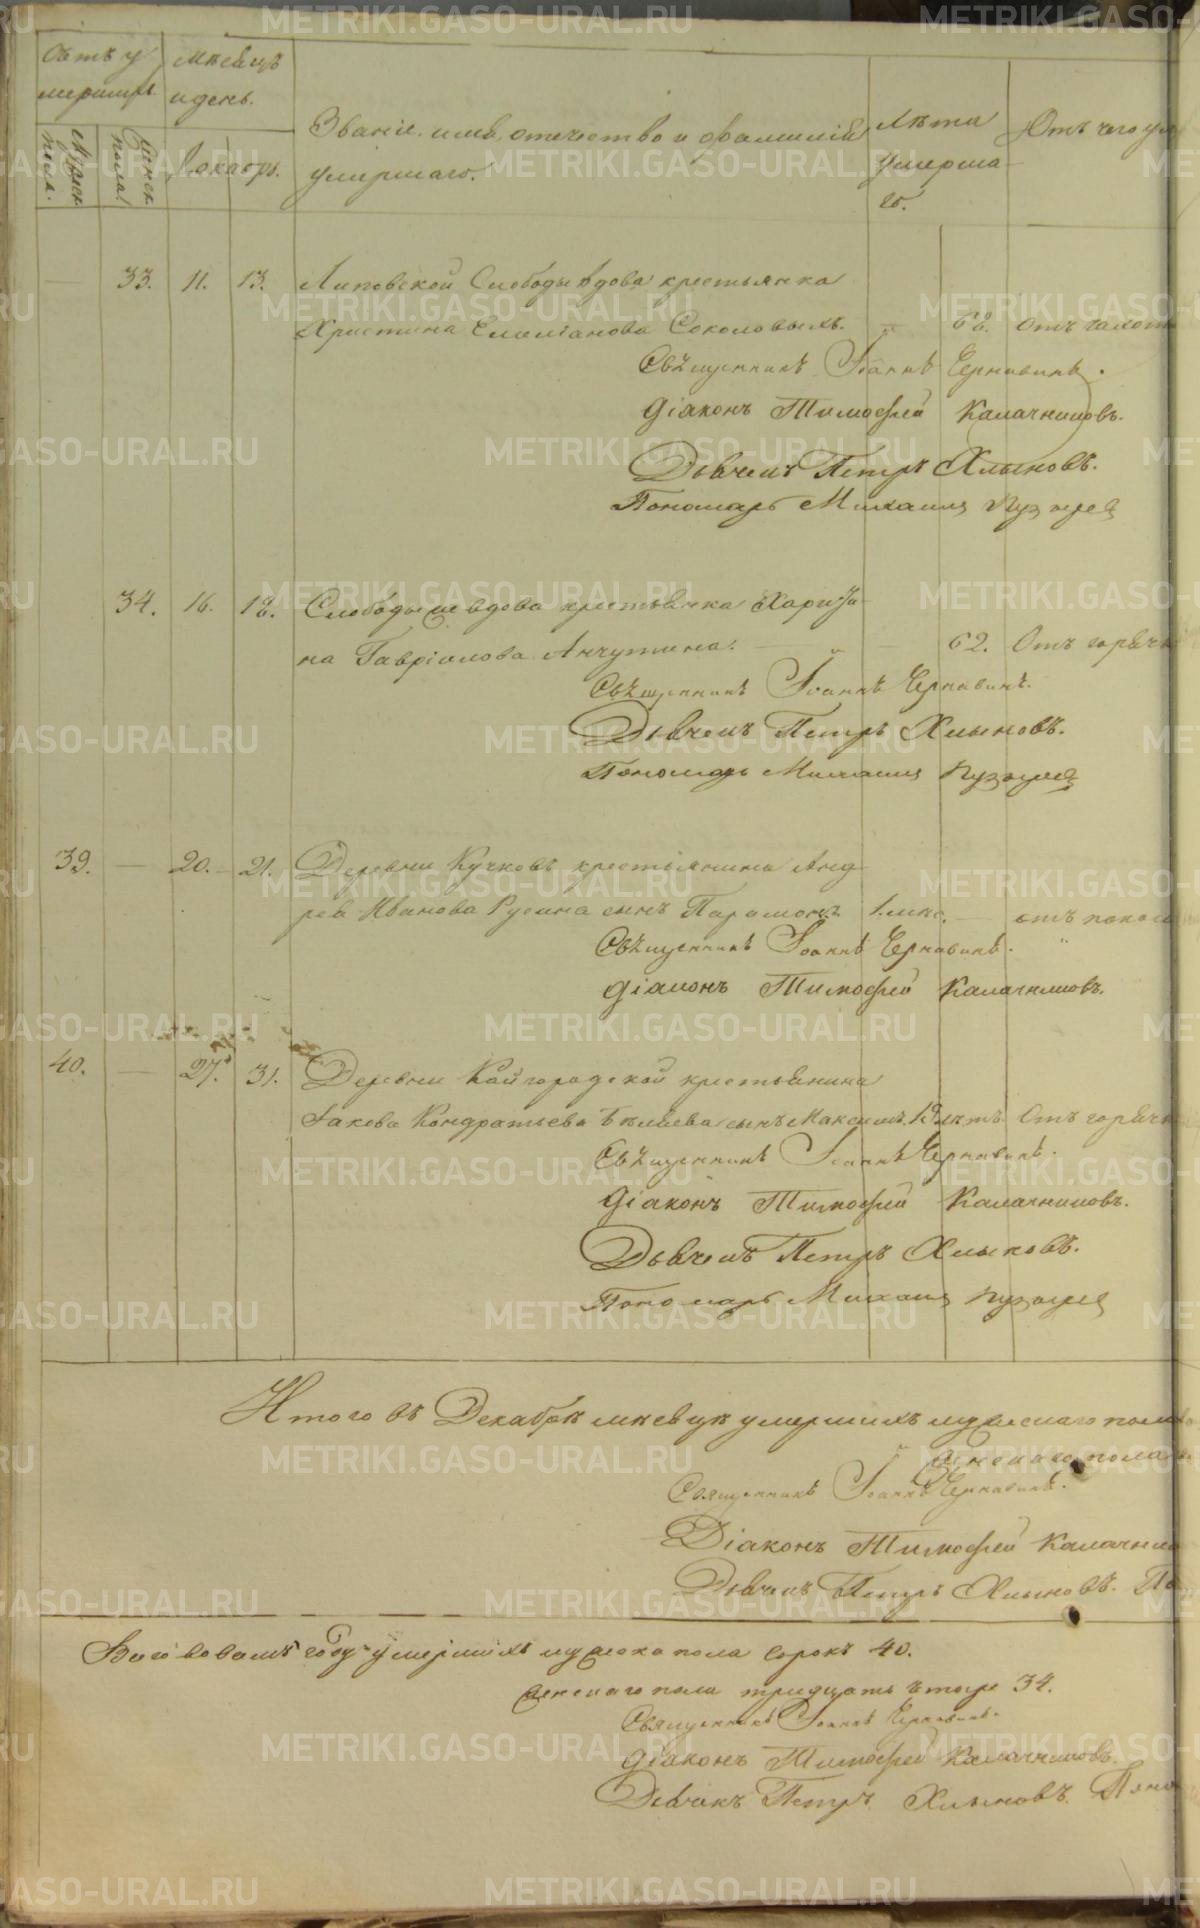 Счетъ у
мершихъ.
Мѣсяцъ
и день.
Званіе, имя, отечество и фамилія
умершаго.
Лѣта
умерша-
го.
Отъ чего ум
Мужеск.
пола.
Женск.
пола.
Декабрь.
33. 11. 13. Липовской Слободы вдова крестьянка
Христина Емеліанова Соколовыхъ. 68. Отъ чахот
Свѣщенникъ Іоаннъ Чернавинъ.
Діаконъ Тимофей Калачниковъ.
Дьячекъ Петръ Хлыновъ.
Пономарь Михаилъ
34. 16. 18. Слободы же вдова крестьянка Харити-
на Гавріилова Анчутина. 62. Отъ горячк
Свѣщенникъ Іоаннъ Чернавинъ.
Дьячекъ Петръ Хлыновъ.
Пономарь Михаилъ
39. 20. 21. Деревни Кучковъ крестьянина Анд
рея Иванова Русина сынъ Парамонъ 1.мѣс. отъ
Свѣщенникъ Іоаннъ Чернавинъ.
Діаконъ Тимофей Калачниковъ.
40. 27. 31. Деревни Кайгородской крестьянина
Іакова Кондратьева Бѣляева сынъ Максимъ. 19 лѣтъ Отъ горячк
Свѣщенникъ Іоаннъ Чернавинъ.
Діаконъ Тимофей Калачниковъ.
Дьячекъ Петръ Хлыновъ.
Пономарь Михаилъ
Итого въ Декабрѣ мѣсяцѣ умершихъ мужескаго пола
женскаго пола
Священникъ Іоаннъ Чернавинъ.
Діаконъ Тимофей Калачник
Дьячекъ Петръ Хлыновъ. По
Всего въ семъ году умершихъ мужеска пола сорокъ 40.
женскаго пола тридцать четыре 34.
Священникъ Іоаннъ Чернавинъ.
Діаконъ Тимофей Калачниковъ.
Дьячекъ Петръ Хлыновъ. Поно
METRIKI.GASO-URAL.RU